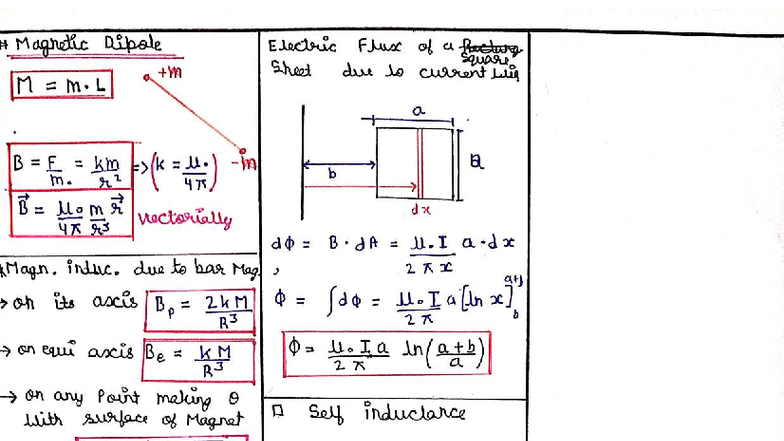 # Magnetic Dipole
M = m.L
+m
-m
B = F/m. = km/r² => (k = μ₀/4π)
B⃗ = μ₀/4π m/r³ r⃗ Vectorially
*Magn. induc. due to bar Mag.
→ on its axis Bp = 2kM/R³
→ on equi axis Be = kM/R³
→ on any Point making θ
with surface of Magnet
Electric Flux of a Square
Sheet due to current
a
a
b
dx
dφ = B.dA = μ₀I/2πx a.dx
,
φ = ∫dφ = μ₀I/2π a[ln x]ᵃ⁺ᵇ_b
φ = μ₀Ia/2π ln(a+b/a)
□ Self inductance